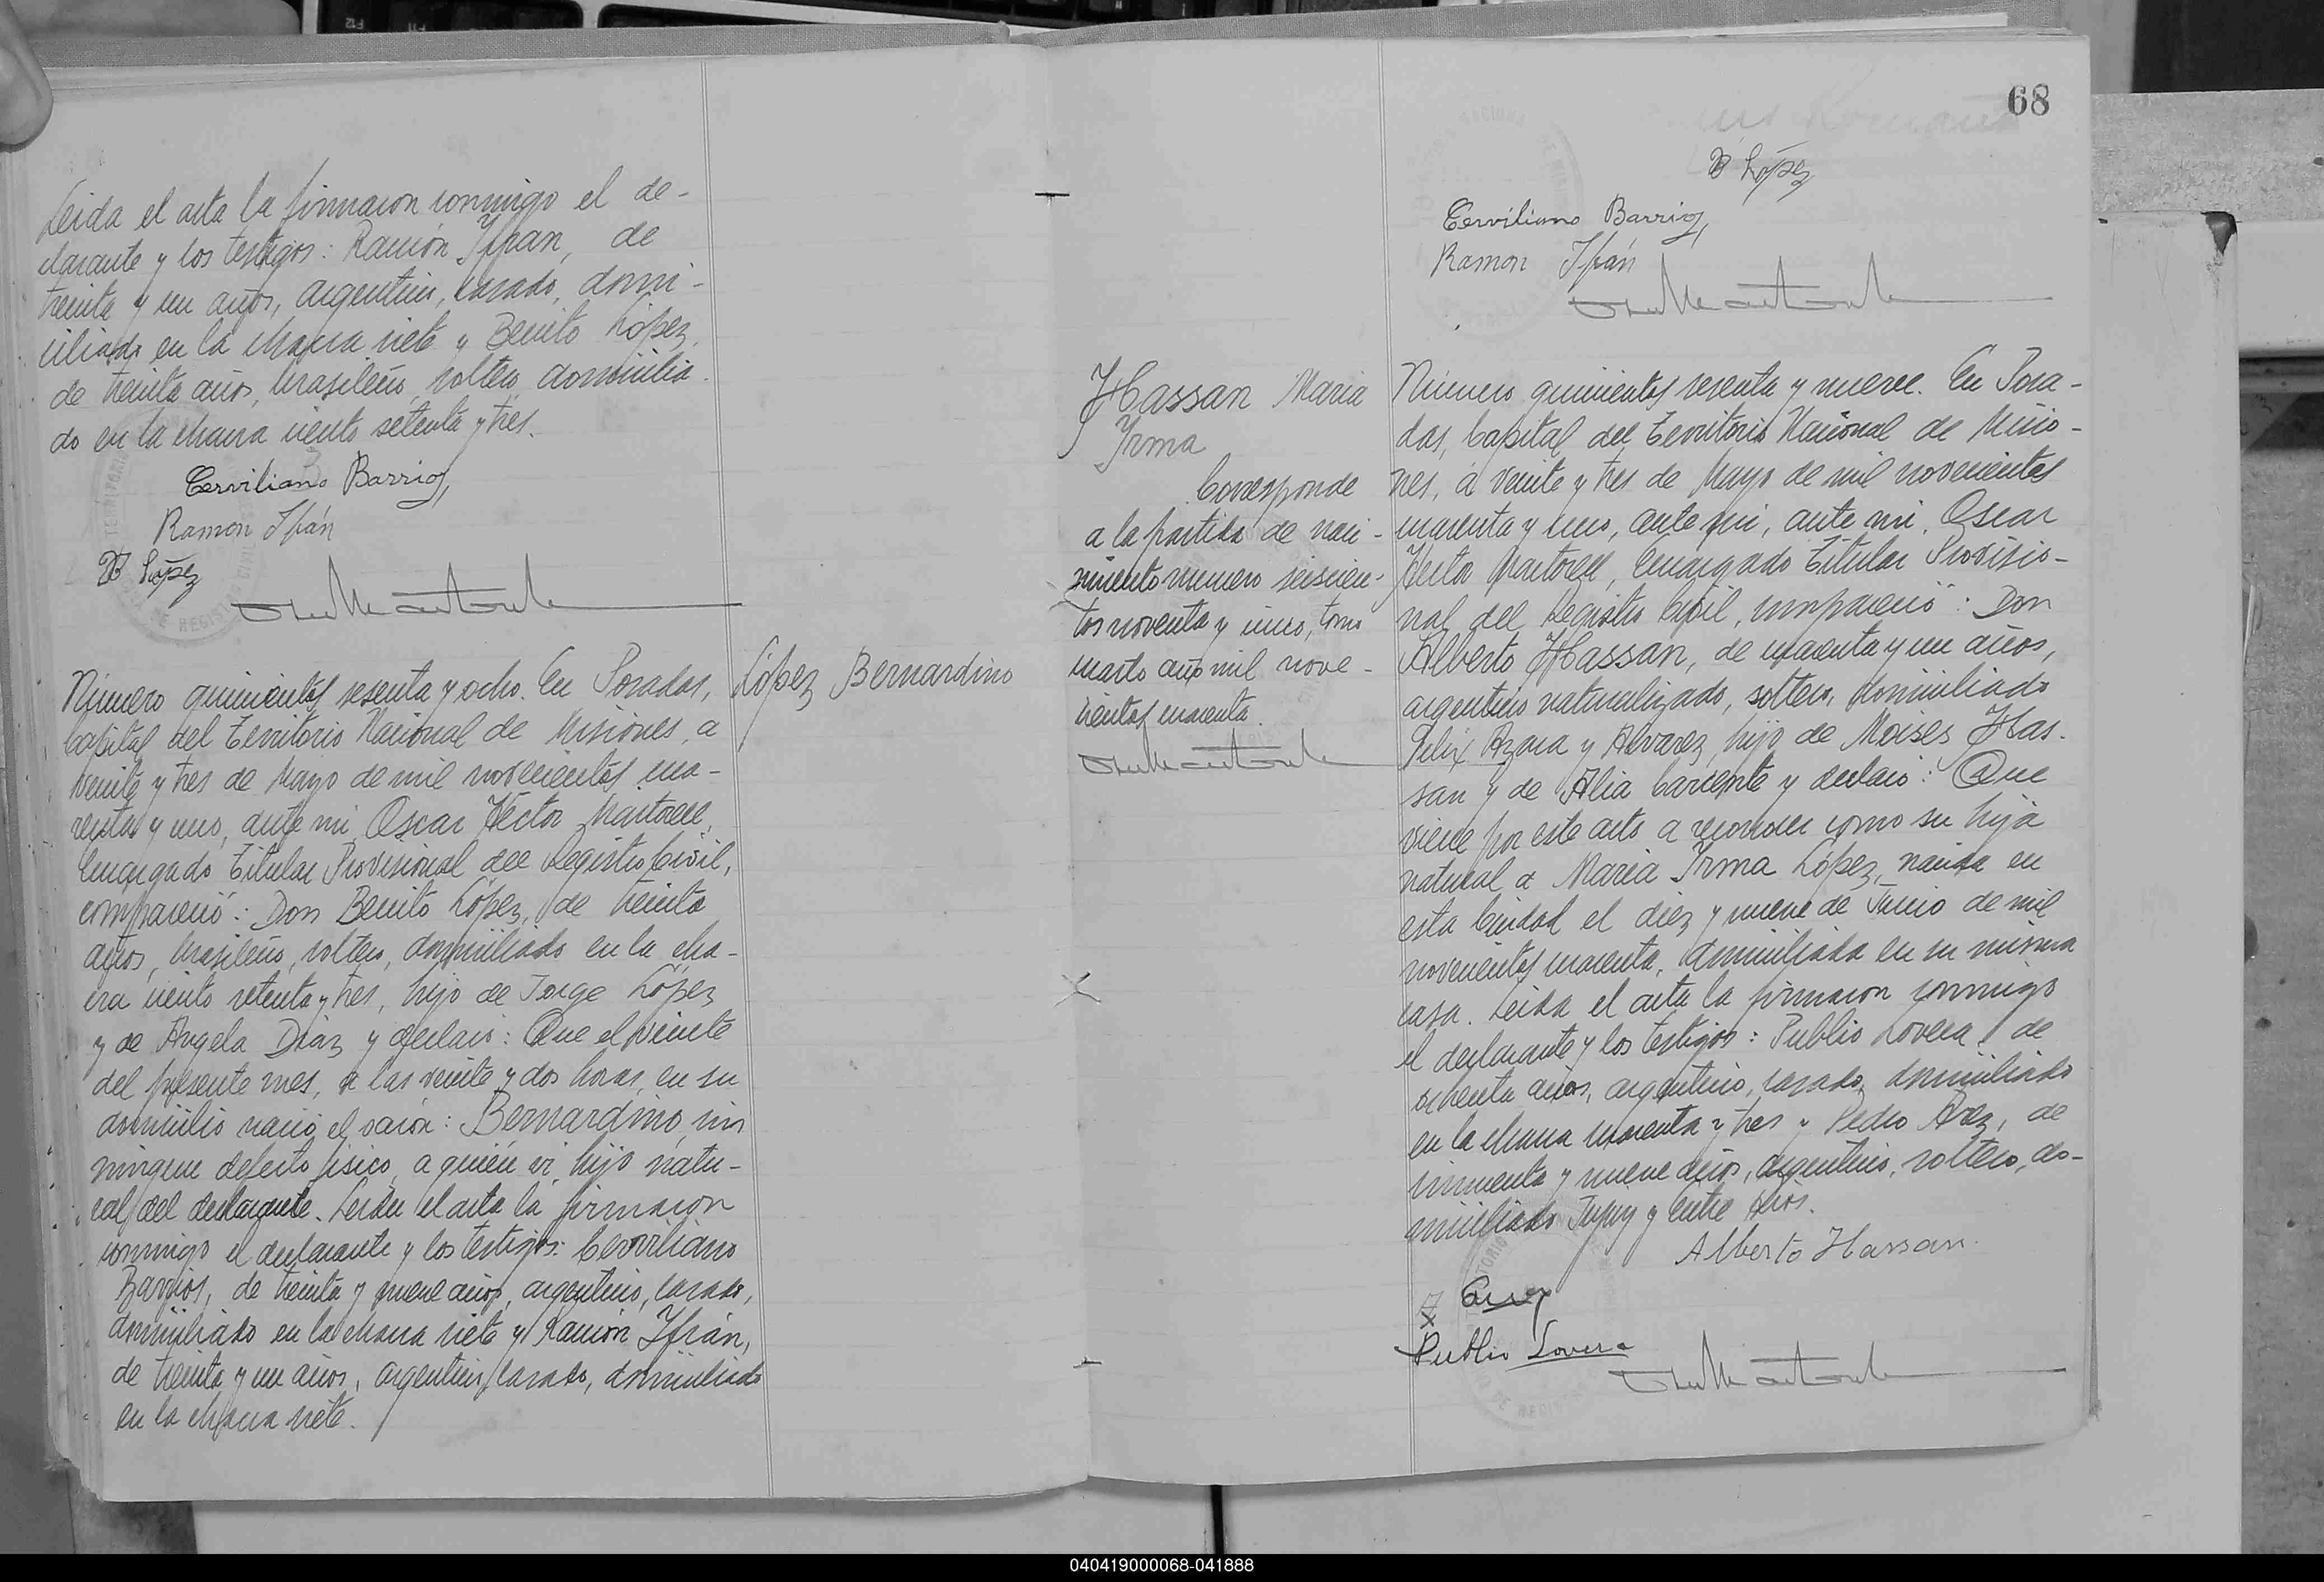 Leida el acta la firmaron conmigo el de-
clarante y los testigos: Ramón Ifran, de
treinta y un años, argentino, casado, domi-
ciliado en la chacra siete y Benito López,
de treinta años, brasileño, soltero, domicilia-
do en la chacra ciento setenta y tres.
Cerviliano Barrios,
Ramon Ifrán
B López
Número quinientos sesenta y ocho. En Posadas,
Capital del Territorio Nacional de Misiones, a
veinte y tres de Mayo de mil novecientos cua-
renta y uno, ante mi Oscar Héctor Martorell,
Encargado Titular Provisional del Registro Civil,
compareció: Don Benito López, de treinta
años, brasileño, soltero, domiciliado en la cha-
cra ciento setenta y tres, hijo de Jorge López
y de Angela Diaz y declaró: Que el veinte
del presente mes, a las veinte y dos horas, en su
domicilio nació el varón: Bernardino, sin
ningun defecto fisico, a quién es hijo natu-
ral del declarante. Leida el acta la firmaron
conmigo el declarante y los testigos: Cerviliano
Barrios, de treinta y nueve años, argentino, casado,
domiciliado en la chacra siete y Ramón Ifrán,
de treinta y un años, argentino, casado, domiciliado
en la chacra siete.
López Bernardino
68
B López
Cerviliano Barrios,
Ramon Ifrán
Hassan Maria
Yrma
Corresponde
a la partida de naci-
miento numero seiscien-
tos noventa y cinco, tomo
cuarto año mil nove-
cientos cuarenta.
Número quinientos sesenta y nueve. En Posa-
das, Capital del Territorio Nacional de Misio-
nes, á veinte y tres de Mayo de mil novecientos
cuarenta y uno, ante mi, ante mi, Oscar
Hector Martorell, Encargado Titular Provisio-
nal del Registro Civil, compareció: Don
Alberto Hassan, de cuarenta y un años,
argentino naturalizado, soltero, domiciliado
Felix Azara y Alvarez, hijo de Moises Has-
san y de Alia Cariente y declaró: Que
viene por este acto a reconocer como su hija
natural a Maria Irma López, nacida en
esta Ciudad el diez y nueve de Junio de mil
novecientos cuarenta, domiciliada en su misma
casa. Leida el acta la firmaron conmigo
el declarante y los testigos: Publio Lovera, de
ochenta años, argentino, casado, domiciliado
en la chacra cuarenta y tres y Pedro Arez, de
cincuenta y nueve años, argentino, soltero, do-
miciliado Jujuy y Entre Rios.
Alberto Hassan
Publio Lovera
040419000068-041888